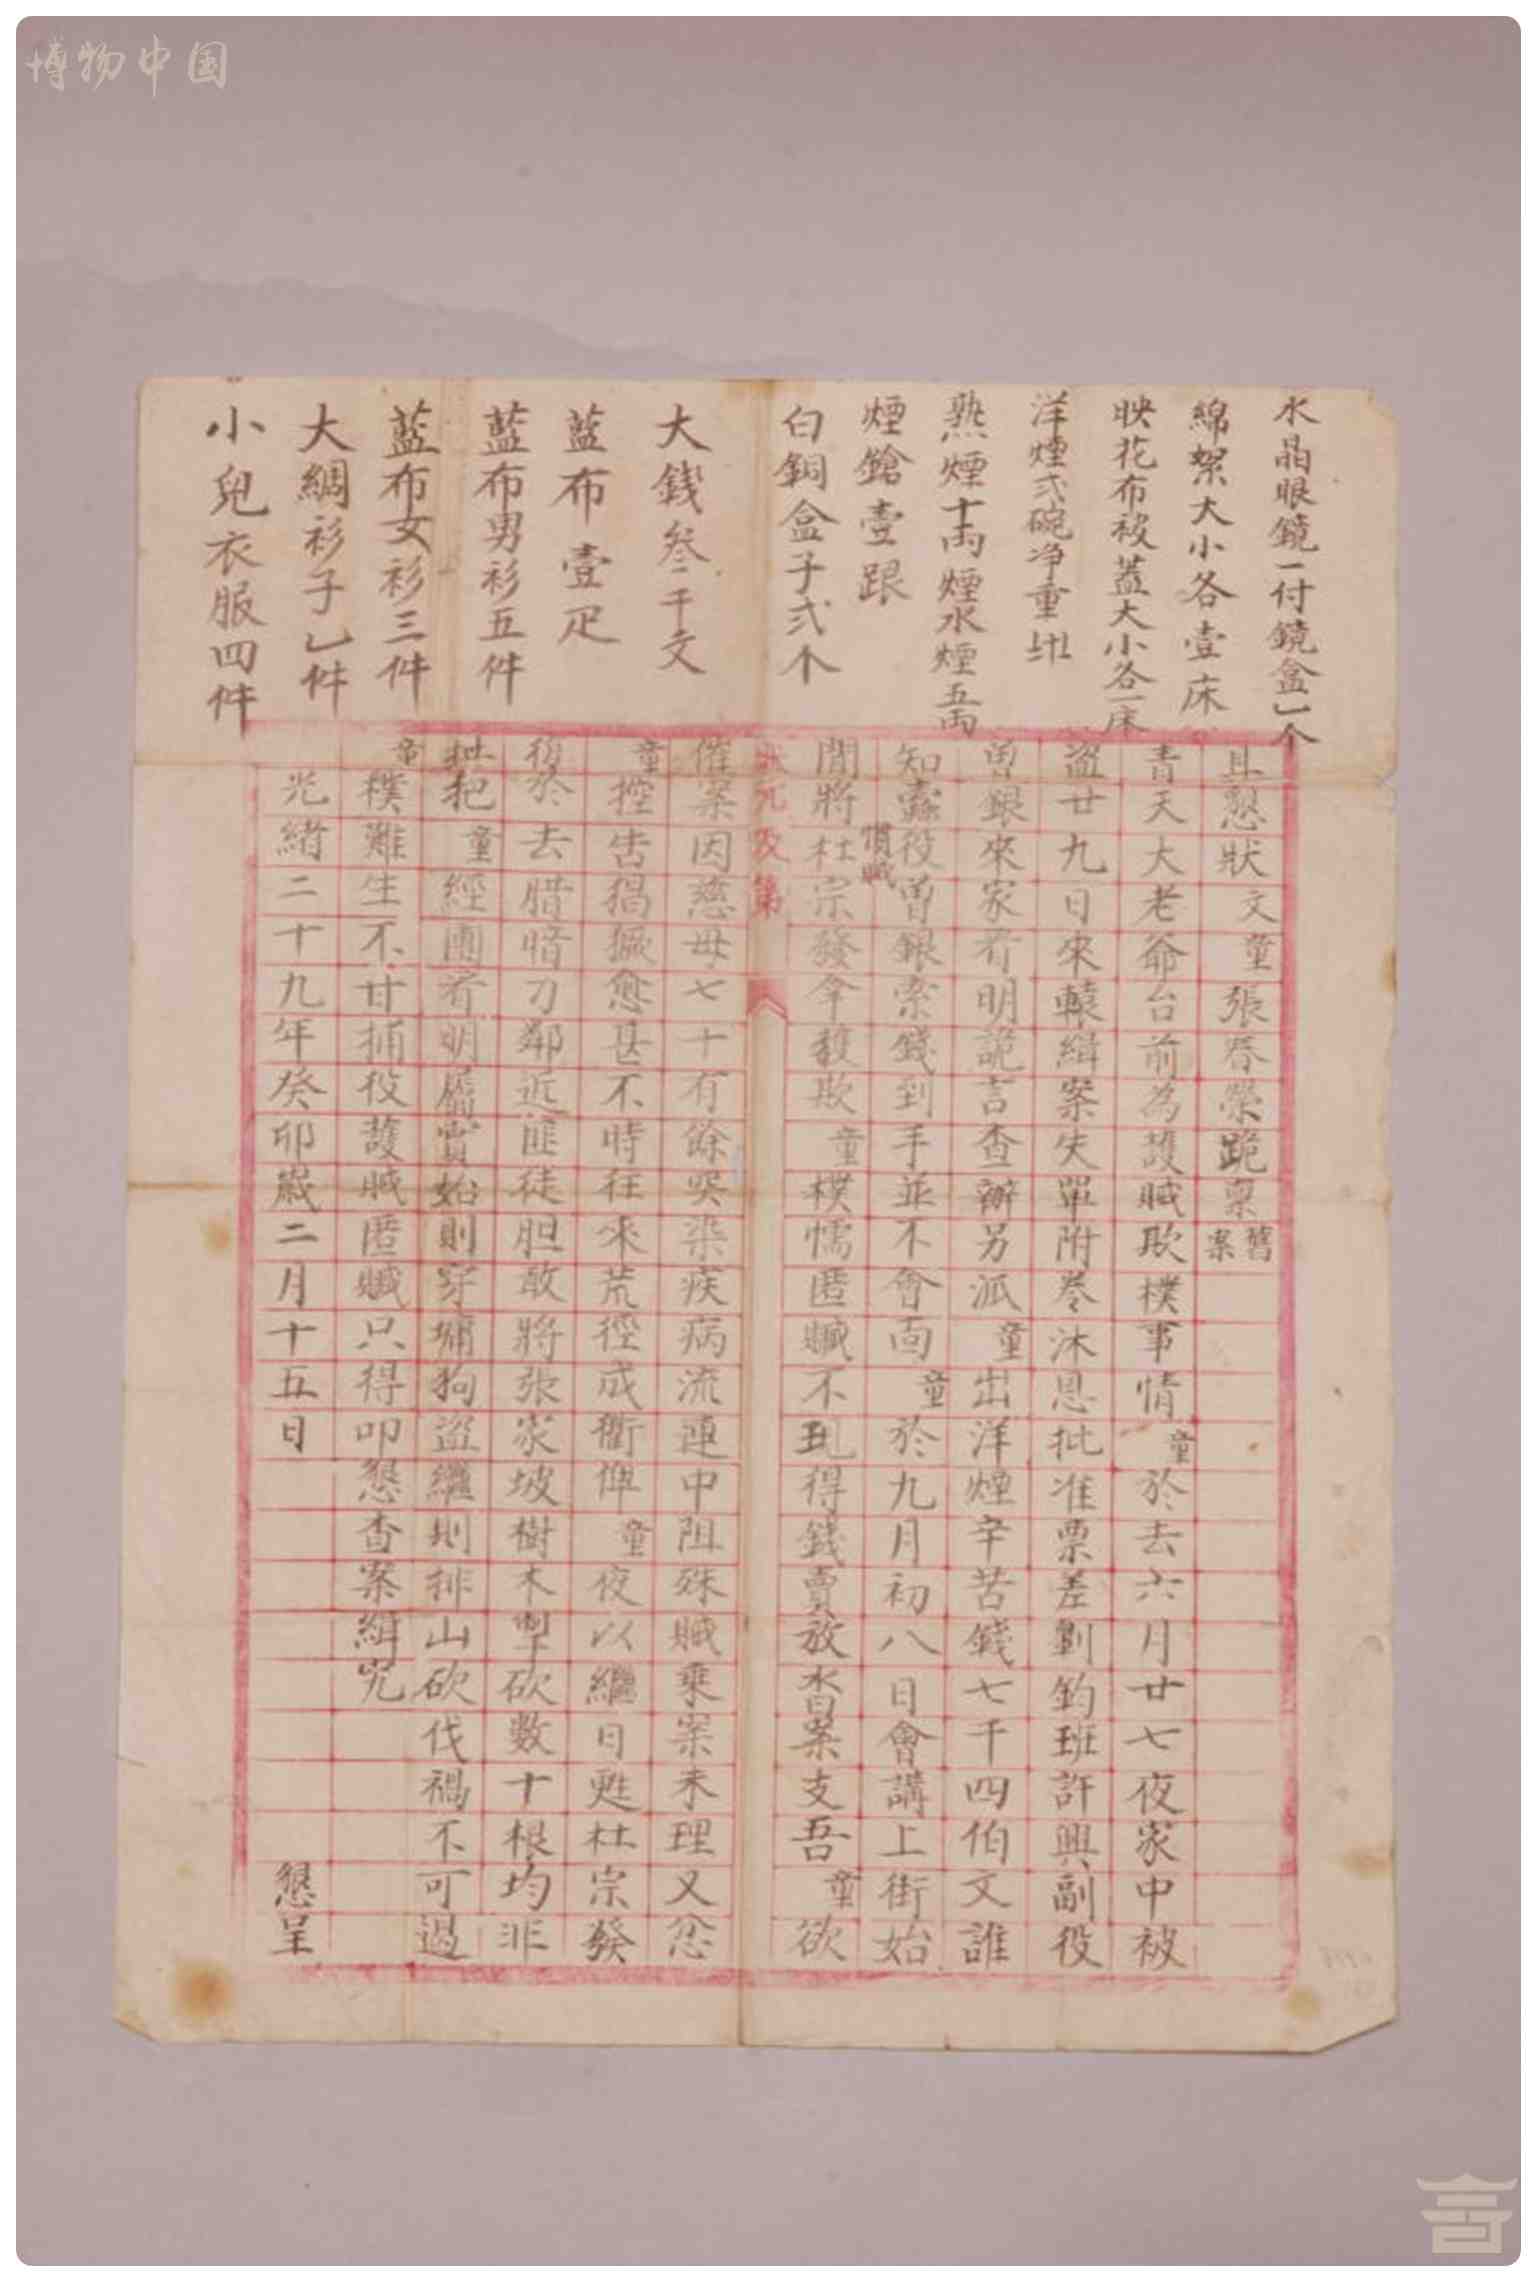 博物中国
水晶眼鏡一付鏡盒乚个
綿絮大小各壹床
映花布被蓋大小各一床
洋煙弍碗净重
熟煙十両煙水煙五両
煙鎗壹跟
白銅盒子弍个
大錢叁千文
藍布壹疋
藍布男衫五件
藍布女衫三件
大綢衫子乚件
小兒衣服四件
具懇狀文童張春榮跪稟舊案
青天大老爺台前為護賊欺樸事情童於去六月廿七夜家中被
盜廿九日來轅緝案失單附卷沐恩批准票差劉鈞班許興副役
曽銀來家看明詭言查辦另派童出洋煙辛苦錢七千四伯文誰
知蠹役曽銀索錢到手並不會面童於九月初八日會講上街始
慣賊
聞將杜宗發拿獲欺童樸懦匿贓不現得錢賣放沓案支吾童欲
狀元及第
催案因慈母七十有餘突染疾病流連中阻殊賊乘案未理又忿
童控告猖獗愈甚不時往來荒徑成衢俾童夜以繼日甦杜宗發
彷於去腊暗刀鄰近匪徒胆敢將張家坡樹木砍數十根均非
批把童經團看明屬實始則穿墉狗盜繼則排山砍伐禍不可過
童樸難生不甘捕役護賊匿贓只得叩懇查案緝究
光緒二十九年癸卯歲二月十五日懇呈